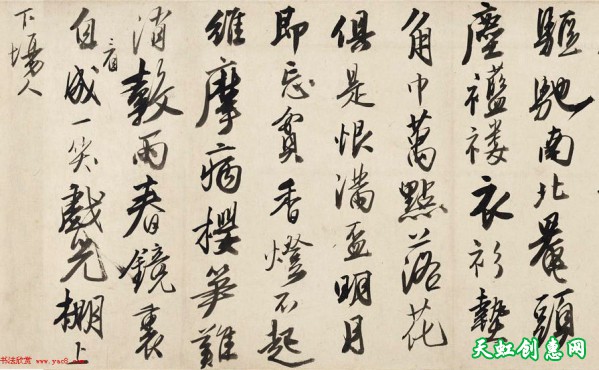 驅馳南北罨頭
塵襤褸衣衫墊
角巾萬點落花
俱是恨滿盃明月
即忘貧香燈不起
維摩病櫻笋難
消穀雨春鏡裏
自看成一笑戲兒棚上
下場人
书法欣赏 www.yac8.com
天虹创惠网